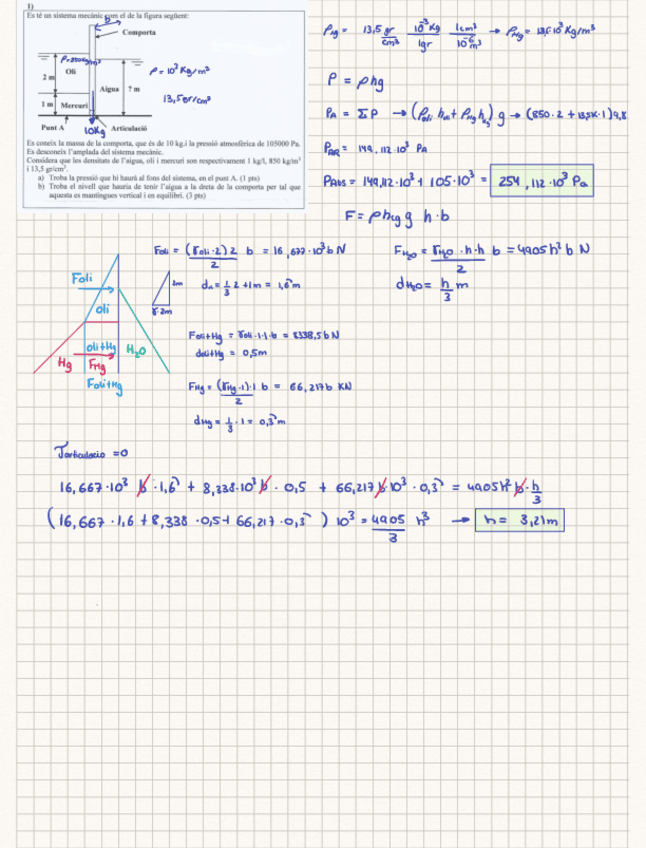 1)
Es té un sistema mecànic com el de la figura següent:
b
Comporta
Oli
2 m
Aigua ? m
ρ = 10³ Kg/m³
13,5 gr/cm³
1 m Mercuri
Punt A
10Kg
Articulació
Es coneix la massa de la comporta, que és de 10 kg.i la pressió atmosfèrica de 105000 Pa.
Es desconeix l'amplada del sistema mecànic.
Considera que les densitats de l'aigua, oli i mercuri son respectivament 1 kg/l, 850 kg/m³
i 13,5 gr/cm³.
a) Troba la pressió que hi haurà al fons del sistema, en el punt A. (1 pts)
b) Troba el nivell que hauria de tenir l'aigua a la dreta de la comporta per tal que
aquesta es mantingues vertical i en equilibri. (3 pts)
13,5 gr/cm³ 10⁻³ Kg/1gr 1cm³/10⁻⁶ m³ →
P = ρhg
PA = ΣP → (ρoli holi + ρHg hHg) g →
PAR = 149,112·10³ Pa
PABS = 149,112·10³ + 105·10³ = 254,112·10³ Pa
F = ρ hcg g h·b
Foli = (γoli·2)2/2 b = 16,677·10³ b N
2m
γ·2m
d = 1/3 2 + 1m = 1,6̂ m
FH2O = γH2O·h·h/2 b = 4905h² b N
dH2O = h/3 m
Foli
oli
oli+Hg
H2O
Hg
FHg
Foli+Hg
Foli+Hg = γoli·1·1·b = 8338,5 b N
doli+Hg = 0,5m
FHg = (γHg·1)·1/2 b = 66,217b KN
dHg = 1/3·1 = 0,3̂ m
articulacio = 0
16,667·10³ b·1,6̂ + 8,338·10³ b·0,5 + 66,217 b 10³·0,3̂ = 4905h² b·h/3
(16,667·1,6 + 8,338·0,5 + 66,217·0,3̂) 10³ = 4905/3 h³ → h = 3,21m